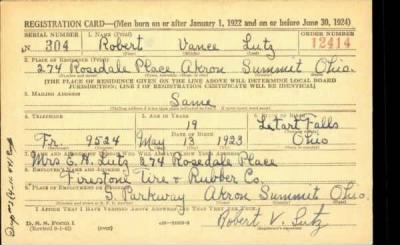 REGISTRATION CARD—(Men born on or after January 1, 1922 and on or before June 30, 1924)
SERIAL NUMBER 1. NAME (Print) ORDER NUMBER
N 304 Robert Vance Lutz 12414
(First) (Middle) (Last)
2. PLACE OF RESIDENCE (Print)
274 Rosedale Place Akron Summit Ohio.
(Number and street) (Town, township, village, or city) (County) (State)
[THE PLACE OF RESIDENCE GIVEN ON THE LINE ABOVE WILL DETERMINE LOCAL BOARD
JURISDICTION; LINE 2 OF REGISTRATION CERTIFICATE WILL BE IDENTICAL]
3. MAILING ADDRESS
Same
4. TELEPHONE 5. AGE IN YEARS 6. PLACE OF BIRTH
19 Letart Falls
DATE OF BIRTH
Fr. 9524 May 13 1923 Ohio
7. NAME AND ADDRESS OF PERSON WHO WILL ALWAYS KNOW YOUR ADDRESS
Mrs E. H. Lutz 274 Rosedale Place
8. EMPLOYER'S NAME AND ADDRESS
Firestone Tire & Rubber Co.
9. PLACE OF EMPLOYMENT OR BUSINESS
S Parkway Akron Summit Ohio.
I AFFIRM THAT I HAVE VERIFIED ABOVE ANSWERS AND THAT THEY ARE TRUE.
D. S. S. Form 1
Robert V. Lutz